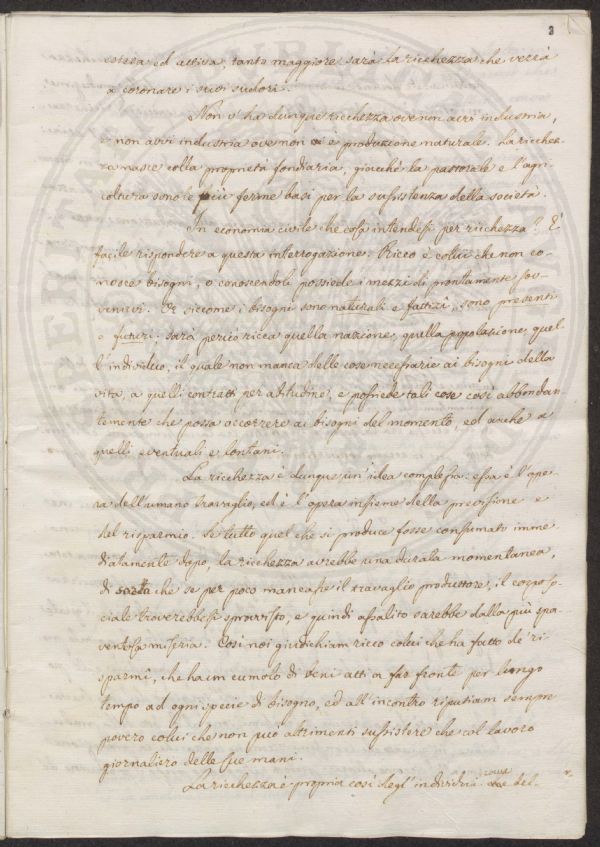 3
estesa ed attiva, tanto maggiore sarà la ricchezza che verrà
a coronare i suoi sudori.
Non v'ha dunque ricchezza ove non avvi industria,
e non avvi industria ove non è produzione naturale. La ricchez-
za nasce colla proprietà fondiaria, giacchè la pastorale e l'agri-
coltura sono le più ferme basi per la sussistenza della società.
In economia civile che cosa intendesi per ricchezza? È
facile rispondere a questa interrogazione. Ricco è colui che non co-
nosce bisogni, o conoscendoli possiede i mezzi di prontamente sov-
venirvi. Or siccome i bisogni sono naturali e fattizî, sono presenti
o futuri: sarà perciò ricca quella nazione, quella popolazione, quel
l'individuo, il quale non manca delle cose necessarie ai bisogni della
vita, a quelli contratti per abitudine, e possiede tali cose così abbondan-
temente che possa occorrere ai bisogni del momento, ed anche a
quelli eventuali e lontani.
La ricchezza è dunque un'idea complessa: essa è l'ope-
ra dell'umano travaglio, ed è l'opera insieme della previsione e
del risparmio. Se tutto quel che si produce fosse consumato imme
diatamente dopo, la ricchezza avrebbe una durata momentanea,
di sorta che se per poco mancasse il travaglio produttore, il corpo so-
ciale troverebbesi sprovvisto, e quindi assalito sarebbe dalla più spa-
ventosa miseria. Così noi giudichiam ricco colui che ha fatto de' ri-
sparmî, che ha un cumolo di beni atti a far fronte per lungo
tempo ad ogni specie di bisogno, ed all'incontro riputiam sempre
povero colui che non può altrimenti sussistere che col lavoro
giornaliero delle sue mani.
La ricchezza è propria così degl'individui come del-